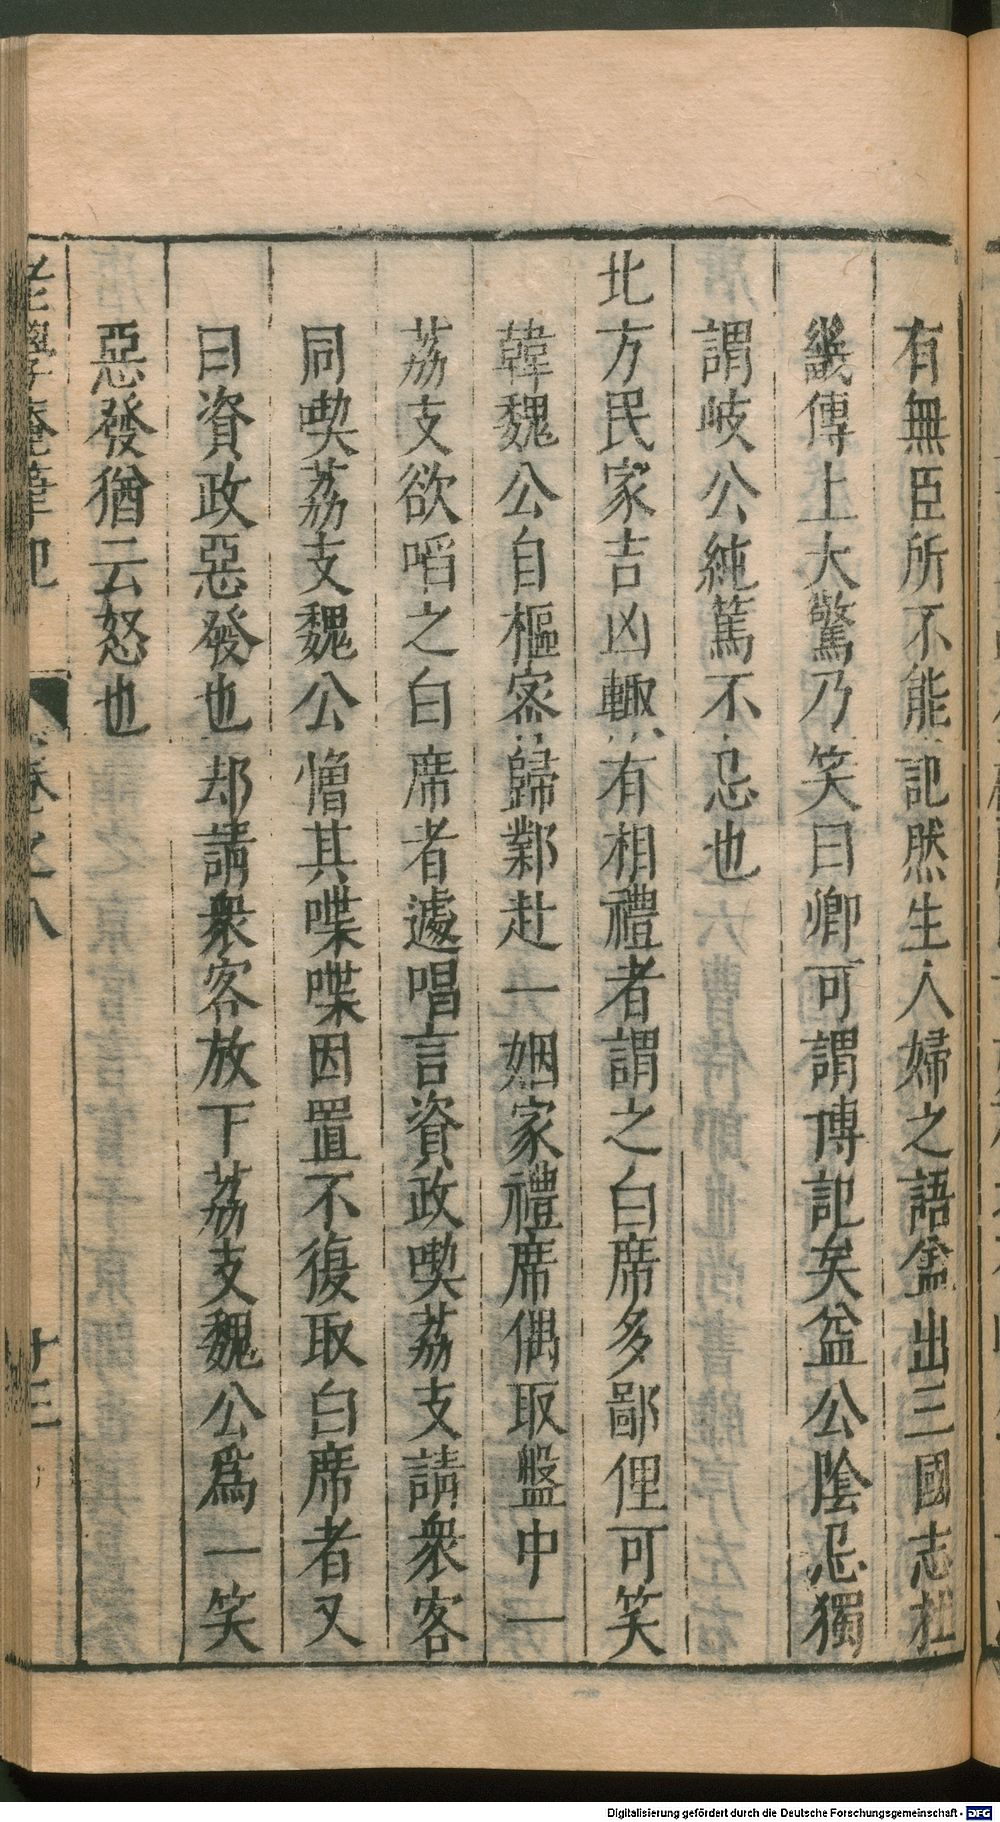 有無臣所不能記然生人婦之語盆出三國志杜
畿傳上大驚乃笑曰卿可謂博記矣盆公陰忌獨
謂岐公純篤不忌也
北方民家吉凶輙有相禮者謂之白席多鄙俚可笑
韓魏公自樞密歸鄴赴一姻家禮席偶取盤中一
荔支欲啗之白席者遽唱言資政喫荔支請衆客
同喫荔支魏公憎其喋喋因置不復取白席者又
曰資政惡發也却請衆客放下荔支魏公爲一笑
惡發猶云怒也
老學庵筆記 卷之八 廿三
Digitalisierung gefördert durch die Deutsche Forschungsgemeinschaft - DFG